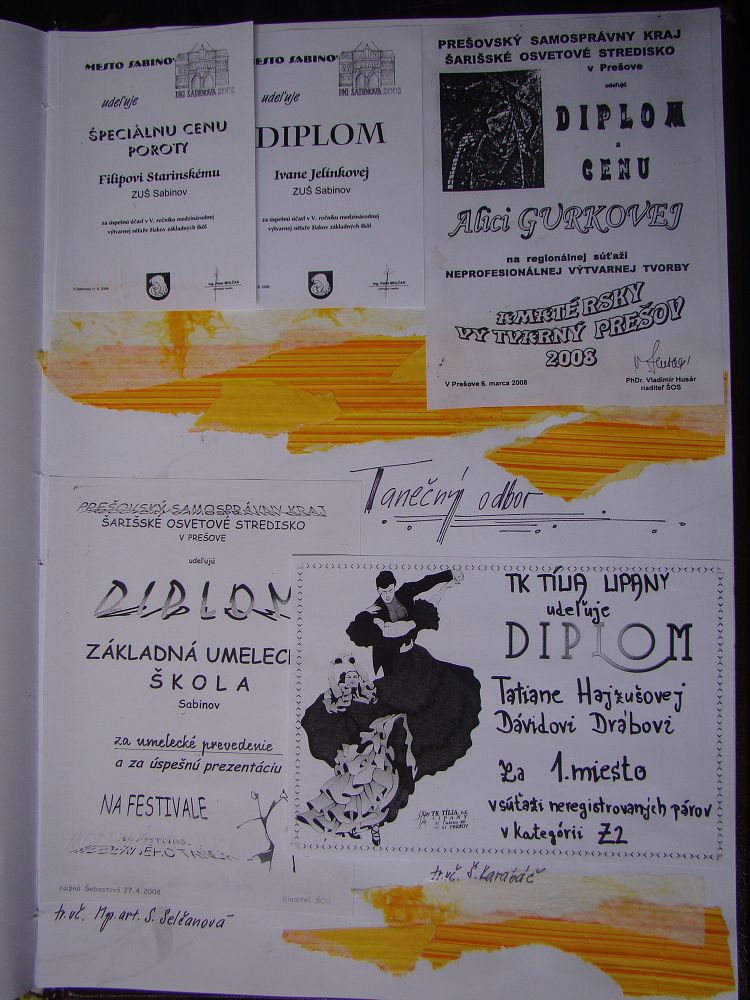 MESTO SABINOV
DNI SABINOVA 2008
udeľuje
ŠPECIÁLNU CENU
POROTY
Filipovi Starinskému
ZUŠ Sabinov
za úspešnú účasť v V. ročníku medzinárodnej
výtvarnej súťaže žiakov základných škôl
V Sabinove 11. 6. 2008
Ing. Peter MOLČAN
primátor mesta
MESTO SABINOV
DNI SABINOVA 2008
udeľuje
DIPLOM
Ivane Jelínkovej
ZUŠ Sabinov
za úspešnú účasť v V. ročníku medzinárodnej
výtvarnej súťaže žiakov základných škôl
6. 2008
Ing. Peter MOLČAN
primátor mesta
PREŠOVSKÝ SAMOSPRÁVNY KRAJ
ŠARIŠSKÉ OSVETOVÉ STREDISKO
v Prešove
udeľujú
DIPLOM
a
CENU
Alici GURKOVEJ
na regionálnej súťaži
NEPROFESIONÁLNEJ VÝTVARNEJ TVORBY
VÝTVARNÝ PREŠOV
2008
V Prešove 6. marca 2008
PhDr. Vladimír Husár
riaditeľ ŠOS
Tanečný odbor
PREŠOVSKÝ SAMOSPRÁVNY KRAJ
ŠARIŠSKÉ OSVETOVÉ STREDISKO
V PREŠOVE
udeľujú
DIPLOM
ZÁKLADNÁ UMELECK
ŠKOLA
Sabinov
za umelecké prevedenie
a za úspešnú prezentáciu
NA FESTIVALE
Nižná Šebastová 27.4.2008
Riaditeľ ŠOS
tr.uč. Mgr.art. S. Selčanová
TK TÍLIA LIPANY
udeľuje
DIPLOM
Tatiane Hajzušovej
Dávidovi Drábovi
za 1.miesto
v súťaži neregistrovaných párov
v kategórii Z2
TK TÍLIA
LIPANY
tr.uč. Š. Karabáč